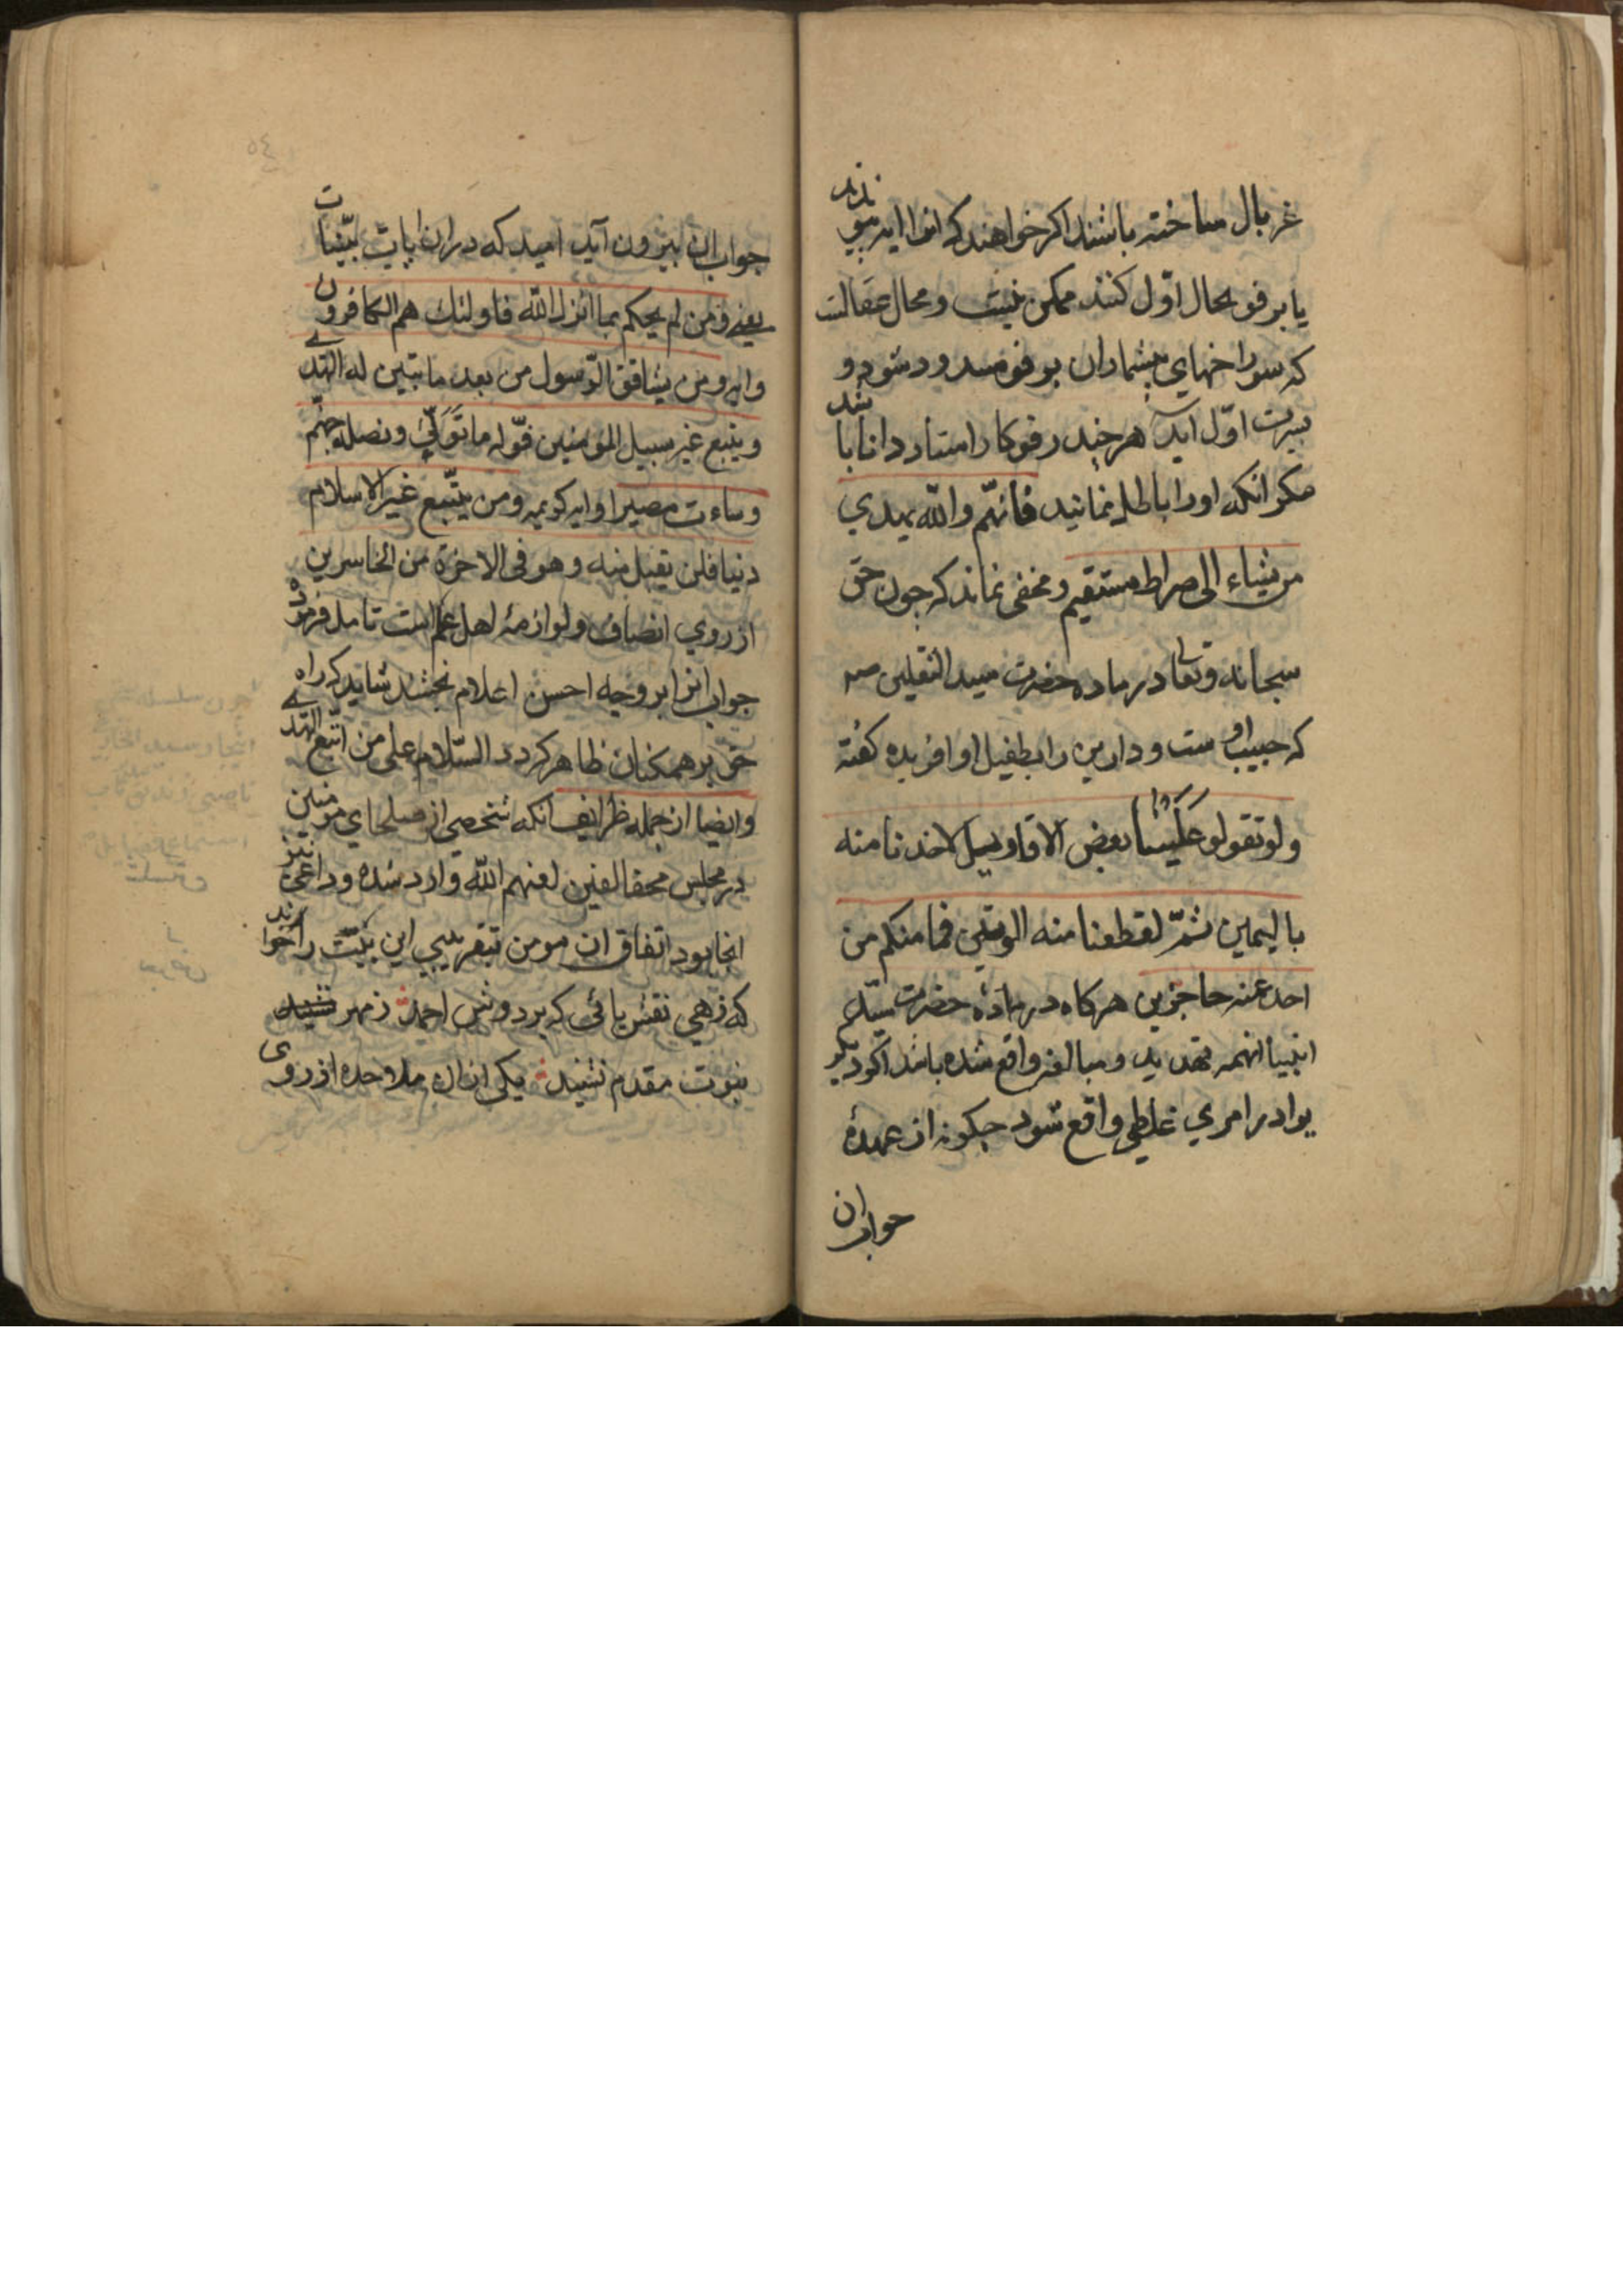 غربال ساخته باشند اكر خواهند كه انرا
يا برفو بحال اوّل كنند ممكن نيست و محال عقالست
كه سوراخهاي بيشماران برفو مسدود شود و
اوّل آيد هر چند رفوكار استاد دانا باشد
مكر انكه او را باطل نمانيد فانهّم واللّه يهدي
من يشاء الى صراط مستقيم و مخفى نماند كه چون حق
سبحانه وتعا در ماده حضرت سيد الثقلين صم
كه حبيب اوست و دارين را بطفيل او افريده كفته
ولو تقولو عَلَيْنا بعض الاقاويل لاخذنا منه
باليمين ثمّ لقطعنا منه الوتين فما منكم من
احد عنه حاجزين هركاه در مادهٔ حضرت سيّد
انبيا انهمه تهديد و مبالغه واقع شده باشد اكر ديكر
يرا در امري غلطي واقع شود چكونه از عهدهٔ
جواب ان
٥٤
جواب ان بيرون آيد اميد كه در ان ايات بيّنات
يعنے ومن لم يحكم بما انزل اللّه فاولئك هم الكافرون
وايه ومن يشاقق الرّسول من بعد ما تبيّن له الهدے
ويتبع غير سبيل المومنين نوّله ما تَوَلّىٰ ونصله جهنّم
وساءت مصيرا وايه كريمه ومن يتّبع غير الاسلام
دنيا فلن تقبل منه وهو في الاخرة من الخاسرين
از روي انصاف ولوازمهٔ اهل علم است تامل فرموده
جواب انرا بر وجه احسن اعلام بخشند شايد كه راه
حق بر همكنان ظاهر كردد السّلام على من اتّبع الهدے
وايضا از جمله ظرايف انكه شخصي از صلحاي مومنين
در مجلس مخالفين لعنهم اللّه وارد شده و داعي نيز
انجا بود اتفاق ان مومن بتقريبي اين بيت را خواند
كه زهي نقش پائى كه بر دوش احمد ز مهر
نبوت مقدم نشيند يكي از ان ملاحده از روى